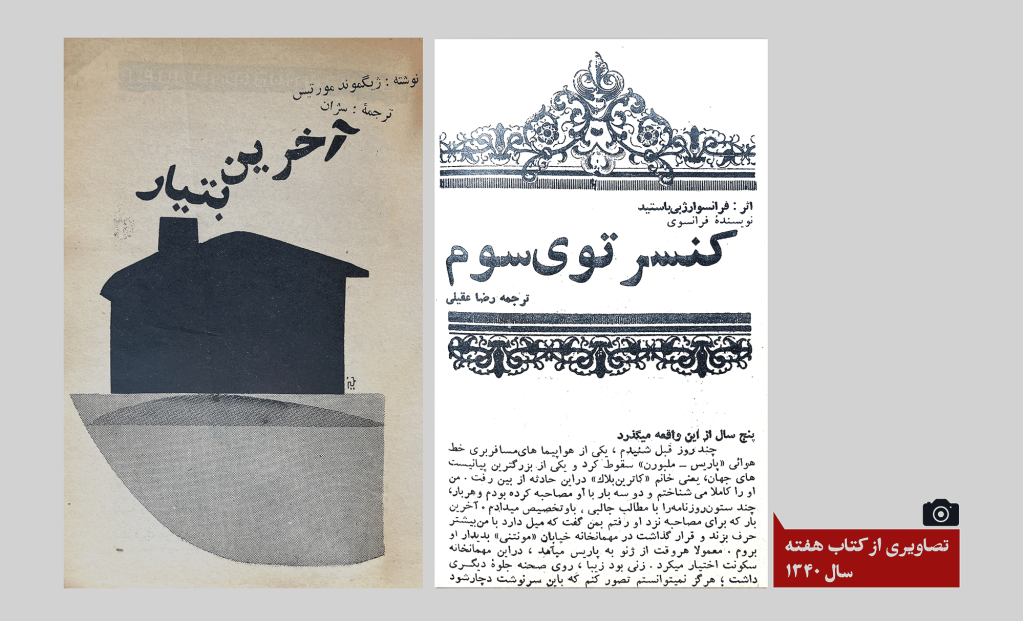 نوشته : ژیگموند مورتیس
ترجمهٔ : سژان
آخرین
بتیار
اثر : فرانسوارژیی‌باستید
نویسندهٔ فرانسوی
کنسرتوی‌سوم
ترجمه رضا عقیلی
پنج سال از این واقعه میگذرد
چند روز قبل شنیدم ، یکی از هواپیما های‌مسافربری خط
هوائی «پاریس ـ ملبورن» سقوط کرد و یکی از بزرگترین پیانیست
های جهان، یعنی خانم «کاترین‌بلاك» دراین حادثه از بین رفت . من
او را کاملا می شناختم و دو سه بار با او مصاحبه کرده بودم وهربار،
چند ستون‌روزنامه‌را با مطالب جالبی ، باوتخصیص میدادم . آخرین
بار که برای مصاحبه نزد او رفتم بمن گفت که میل دارد با من‌بیشتر
حرف بزند و قرار گذاشت در مهمانخانه خیابان «مونتنی» بدیدار او
بروم . معمولا هروقت از ژنو به پاریس میآمد ، دراین مهمانخانه
سکونت اختیار میکرد . زنی بود زیبا ، روی صحنه جلوهٔ دیگری
داشت ؛ هرگز نمیتوانستم تصور کنم که باین سرنوشت دچارشود
تصاویری از کتاب هفته
سال ۱۳۴۰